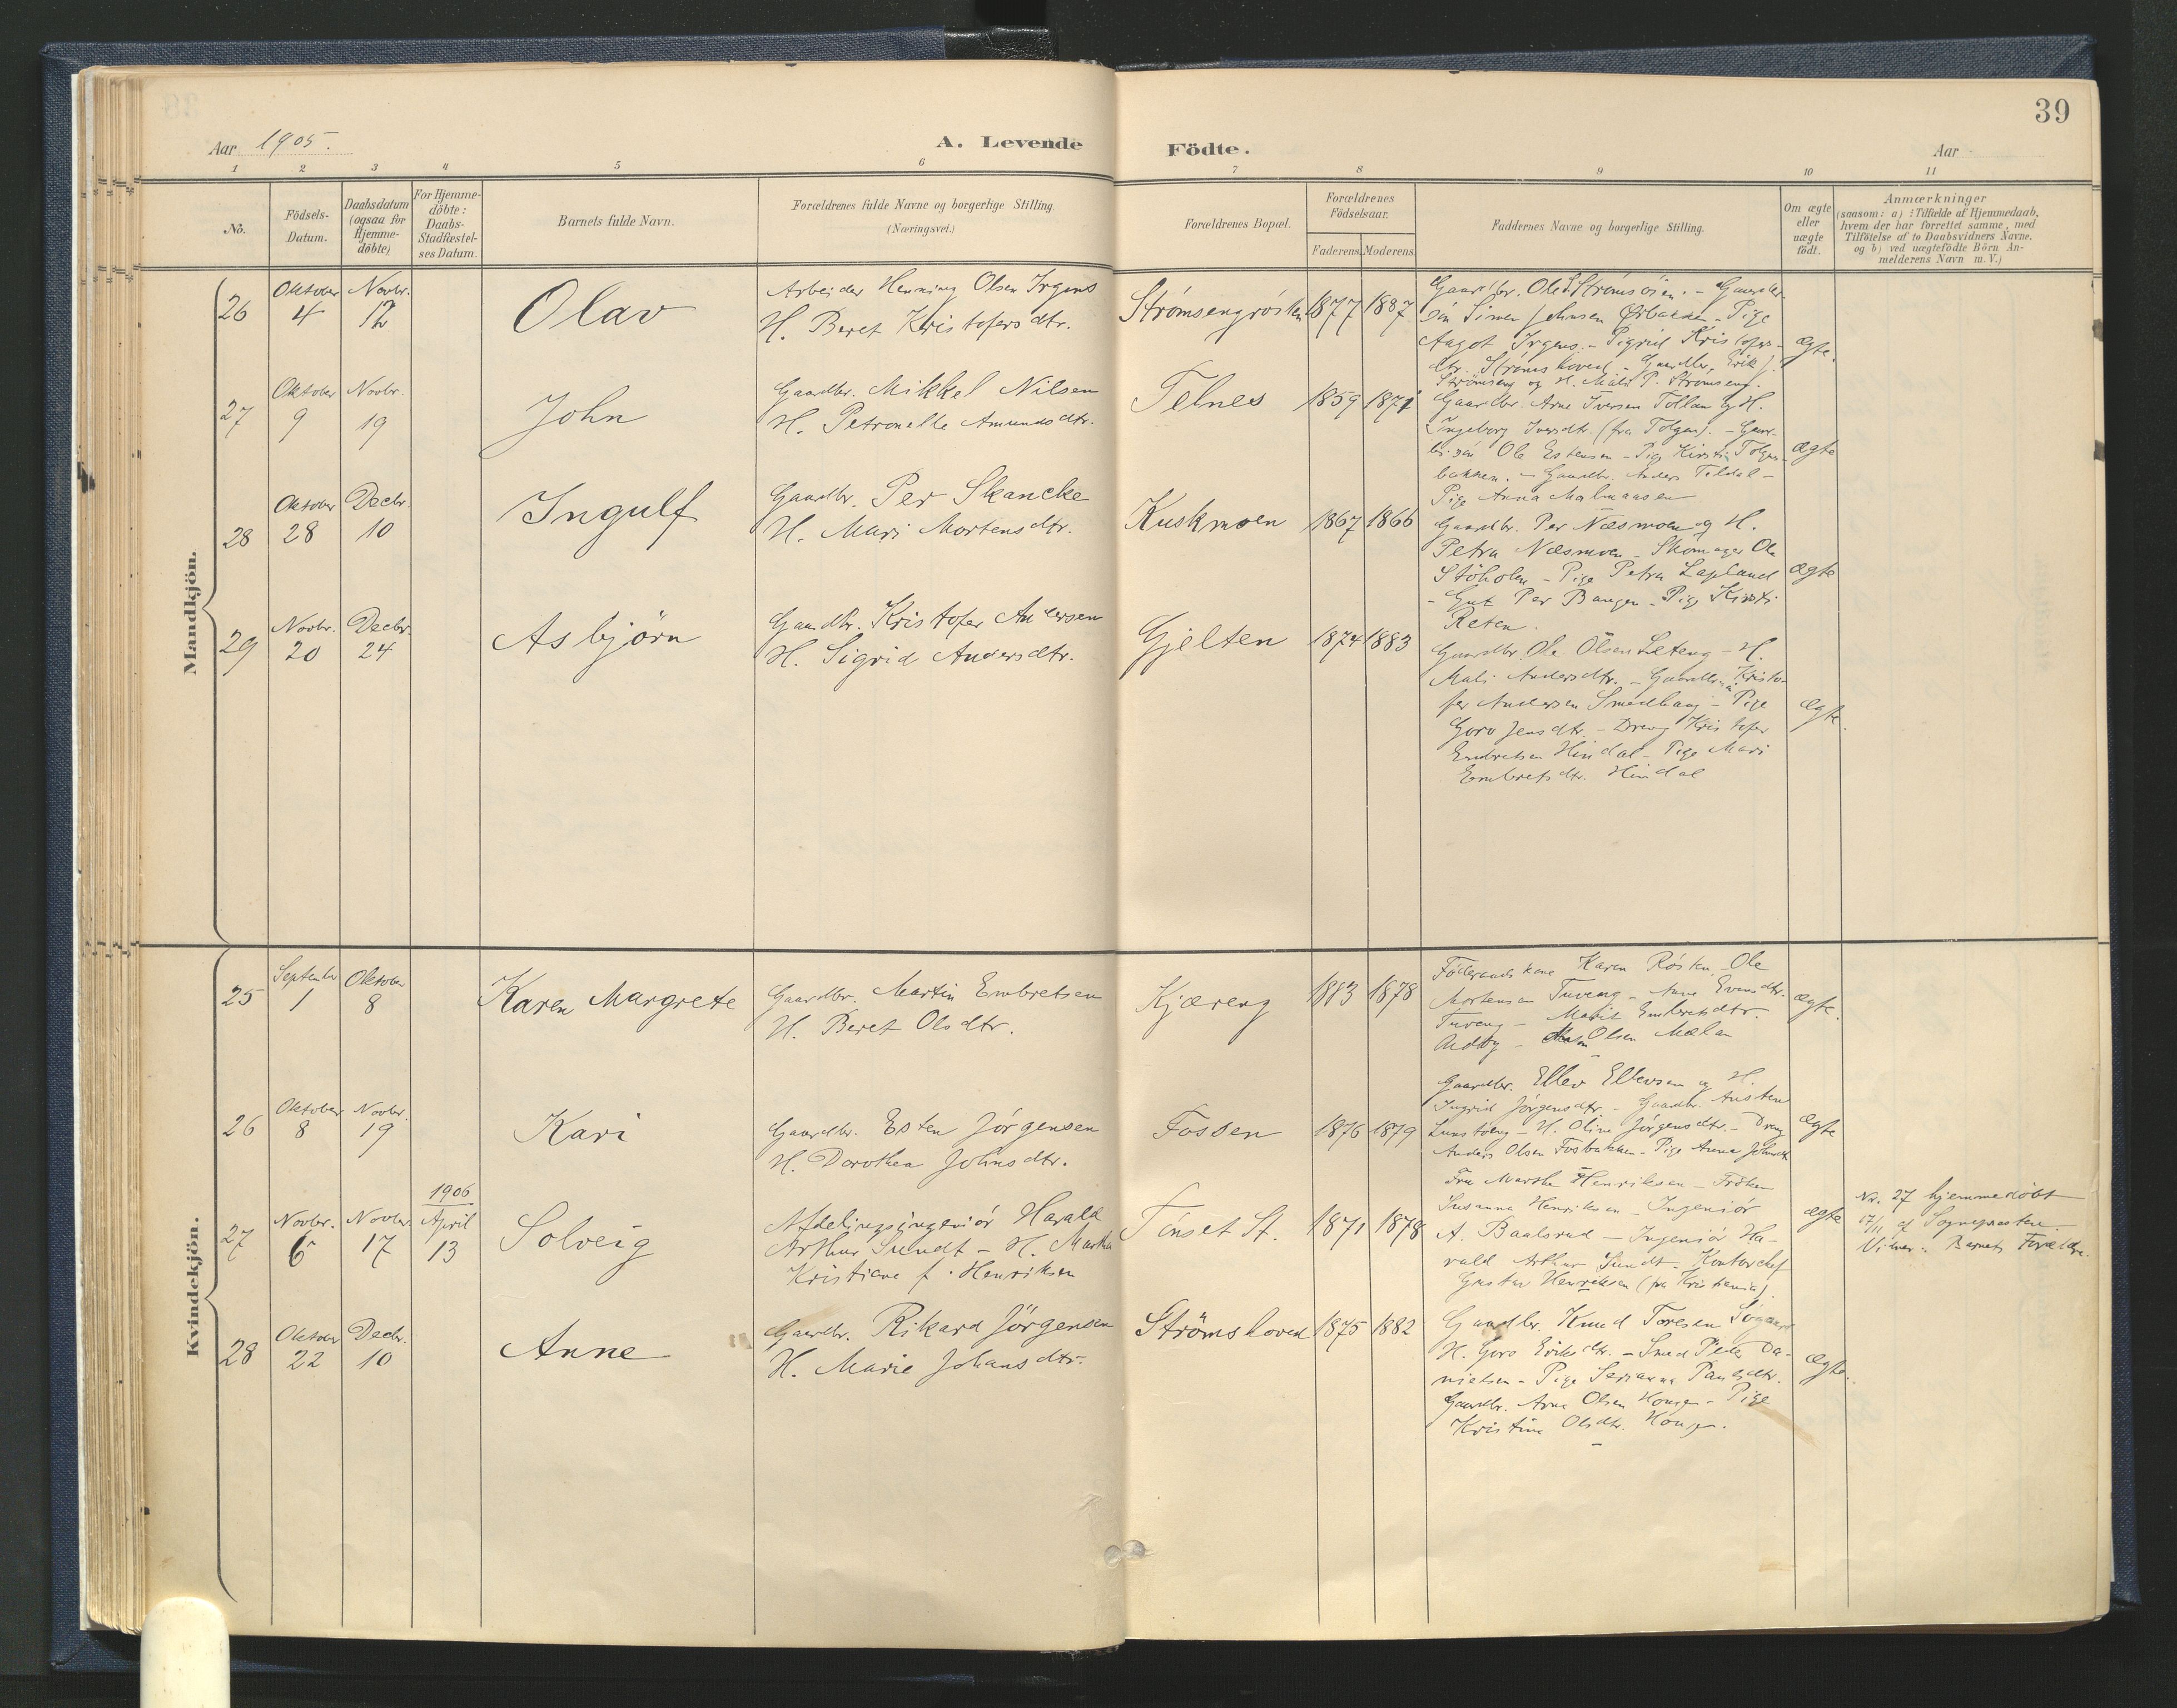 39
Aar 1905.
A. Levende
Födte.
Aar
1 2 3 4 5 6 7 8 9 10 11
No.
Födsels-
Datum.
Daabsdatum
(ogsaa for
Hjemme-
döbte)
For Hjemme-
döbte:
Daabs-
Stadfæstel-
ses Datum.
Barnets fulde Navn.
Forældrenes fulde Navne og borgerlige Stilling.
(Næringsvei.)
Forældrenes Bopæl.
Forældrenes
Födselsaar.
Faderens.
Moderens.
Faddernes Navne og borgerlige Stilling.
Om ægte
eller
uægte
födt.
Anmærkninger
(saasom: a) i Tilfælde af Hjemmedaab,
hvem der har forrettet samme, med
Tilföielse af to Daabsvidners Navne.
og b) ved uægtefödte Börn An-
melderens Navn m. V.)
Mandkjön.
26
Oktober
4
Novbr.
12
Olav
Arbeider Henning Olsen Irgens
H. Beret Kristofersdtr.
Strömsengrösten
1877
1887
Gaardbr. Ole Strömsöien. - Gaardbr-
sön Simen Johnsen Örbakken - Pige
Aagot Irgens. - Sigrid Kristofers-
dtr. Strömshoved - Gaardbr. Erik J.
Strömseng og H. Mali P. Strömseng.
ægte.
27
Oktober
9
Novbr.
19
John
Gaardbr. Mikkel Nilsen
H. Petronelle Amundsdtr.
Telnes
1859
1871
Gaardbr. Arne Iversen Tollan og H.
Ingeborg Iversdtr. (fra Tolgen). - Gaard-
br. sön Ole Estensen - Pige Kirsti Tolgens-
bakken. - Gaardbr. Anders Teldal -
Pige Anna Malmaasen
ægte
28
Oktober
28
Decbr.
10
Ingulf
Gaardbr. Per Skancke
H. Mari Mortensdtr.
Kuskmoen
1867
1866
Gaardbr. Per Næsmoen og H.
Petra Næsmoen - Skomager Ole
Stöholen - Pige Petra Lapland
- Gut Per Bangen - Pige Kirsti
Reten.
ægte
29
Novbr.
20
Decbr.
24
Asbjörn
Gaardbr. Kristofer Andersen
H. Sigrid Andersdtr.
Gjelten
1874
1883
Gaardbr. Ole Olsen Leteng - H.
Mali Andersdtr. - Gaardbr. Kristo-
fer Andersen Smedhaug - Pige
Goro Jensdtr. - Dreng Kristofer
Embretsen Hindal - Pige Mari
Embretsdtr. Hindal
ægte.
Kvindekjön.
25
September
1
Oktober
8
Karen Margrete
Gaardbr. Martin Embretsen
H. Beret Olsdtr.
Kjæreng
1883
1878
Föderaadskone Karen Rösten - Ole
Mortensen Tuveng - Anne Evensdtr.
Tuveng - Marit Embretsdtr.
- Olsen Mælan
ægte.
26
Oktober
8
Novbr.
19
Kari
Gaardbr. Esten Jörgensen
H. Dorothea Johnsdtr.
Fossen
1876
1879
Gaardbr. Ellev Ellevsen og H.
Ingrid Jörgensdtr. - Gaardbr. Austen
- H. Oline Jörgensdtr. - Dreng
Anders Olsen Fosbakken - Pige Anna Johnsdtr
ægte
27
Novbr.
6
Novbr.
17
1906
April
13
Solveig
Afdelingsingeniör Harald
Arthur Sundt - H. Martha
Kristiane f. Henriksen
Tönset St.
1871
1878
Fru Marthe Henriksen - Fröken
Susanna Henriksen - Ingeniör
A. Baalsrud - Ingeniör Ha-
rald Arthur Sundt - Kontorchef
Gustav Henriksen (fra Kristiania).
ægte
Nr. 27 hjemmedöbt
17/11 af Sognepresten.
Vidner: Barnets Forældre.
28
Oktober
22
Decbr.
10
Anne
Gaardbr. Rikard Jörgensen
H. Marie Johansdtr.
Strömshoved
1875
1882
Gaardbr. Knud Toresen
H. Goro Eriksdtr. - Smed Peder Da-
nielsen - Pige Serianna Paulsdtr.
Gaardbr. Arne Olsen Hougen - Pige
Kristine Olsdtr. Hougen.
ægte.